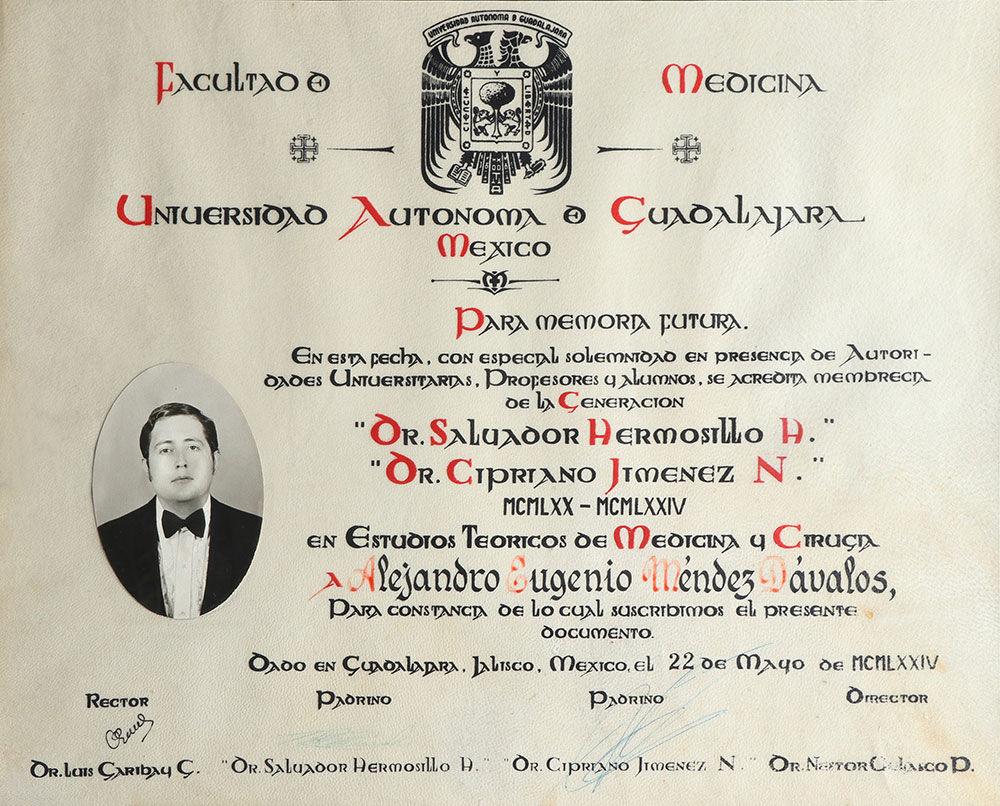 UNIVERSIDAD AUTONOMA D GUADALAJARA
Y
CIENCIA
LIBERTAD
FACULTAD D MEDICINA
UNIVERSIDAD AUTONOMA D GUADALAJARA
MEXICO
PARA MEMORIA FUTURA.
EN ESTA FECHA, CON ESPECIAL SOLEMNIDAD EN PRESENCIA DE AUTORI-
DADES UNIVERSITARIAS, PROFESORES Y ALUMNOS, SE ACREDITA MEMBRECIA
DE LA GENERACION
"DR. SALVADOR HERMOSILLO H."
"DR. CIPRIANO JIMENEZ N."
MCMLXX – MCMLXXIV
EN ESTUDIOS TEORICOS DE MEDICINA Y CIRUGIA
A Alejandro Eugenio Méndez Dávalos,
PARA CONSTANCIA DE LO CUAL SUSCRIBIMOS EL PRESENTE
DOCUMENTO.
DADO EN GUADALAJARA, JALISCO, MEXICO, EL 22 DE MAYO DE MCMLXXIV
RECTOR PADRINO PADRINO DIRECTOR
DR. LUIS GARIBAY G. "DR. SALVADOR HERMOSILLO H." "DR. CIPRIANO JIMENEZ N." DR. NESTOR VELASCO P.